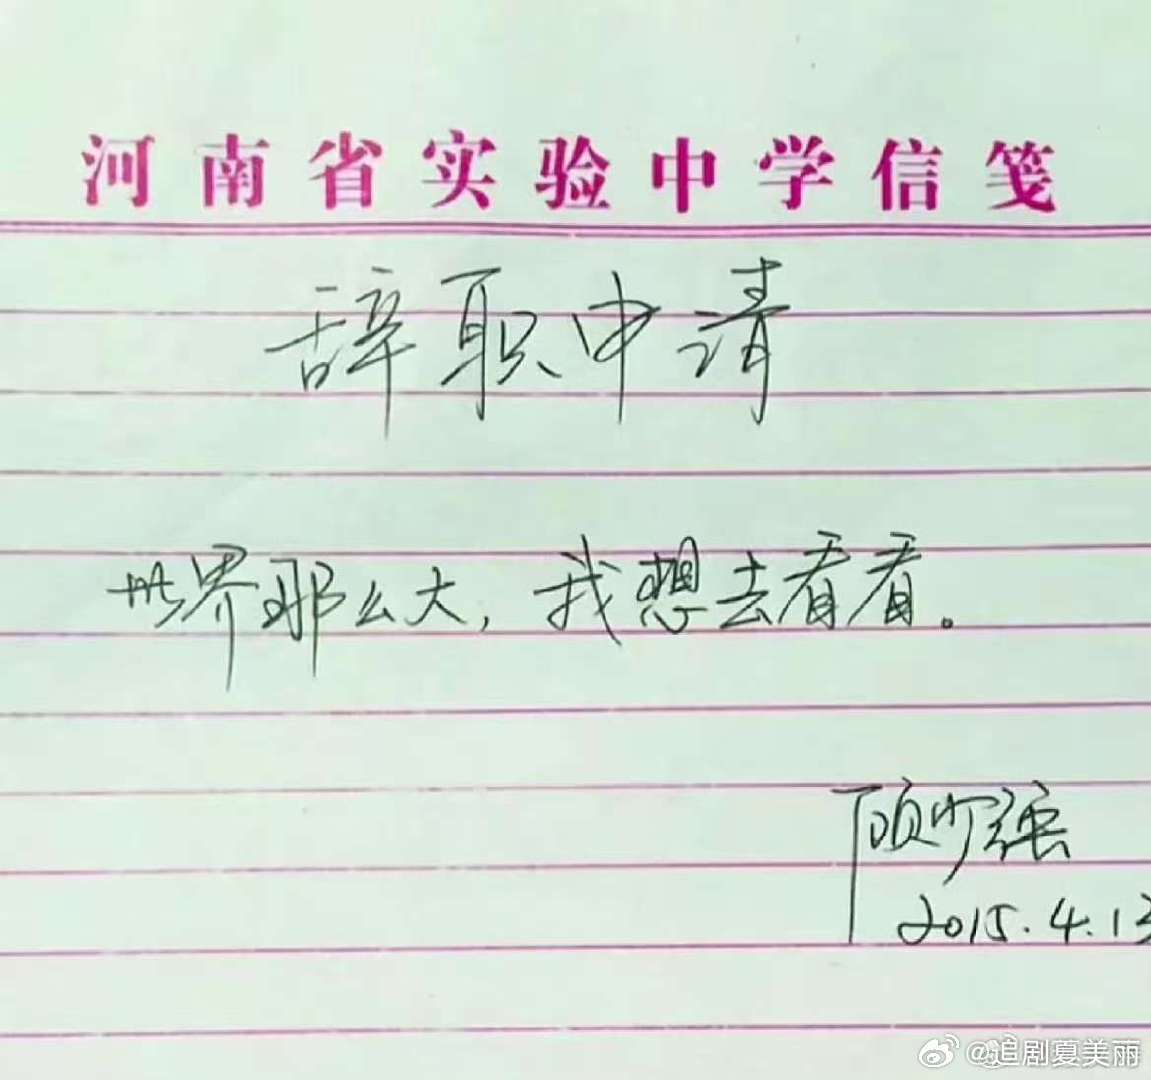 河南省实验中学信笺
辞职申请
世界那么大，我想去看看。
顾少强
2015.4.13
@追剧夏美丽